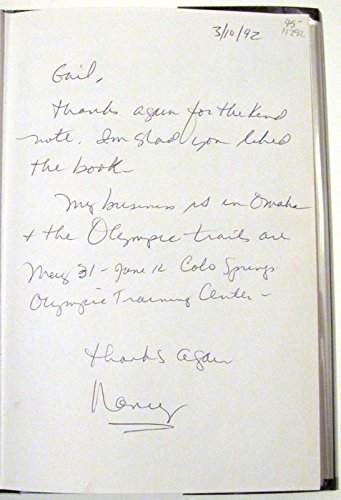 3/10/92
45-
11292
Gail,
thanks again for the kind
note. Im glad you liked
the book
My business is in Omaha
+ the Olympic trails are
May 31 - June 12 Colo Springs
Olympic Training Center -
thanks again
Nancy